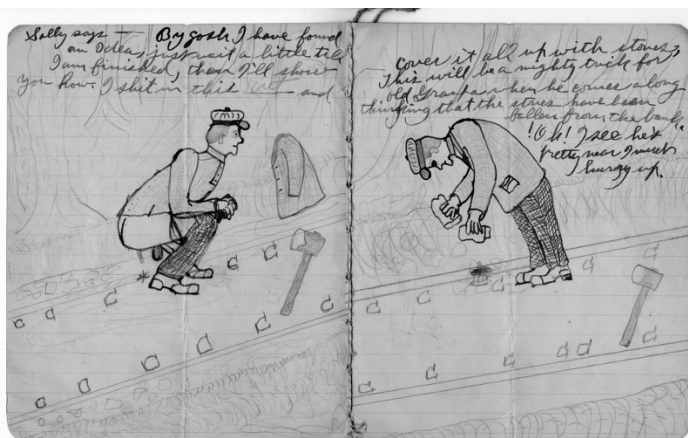 Solly says — By gosh I have found
an Idea, just wait a little till
I am finished, then I'll show
you how. I shit in this and
Cover it all up with stones,
This will be a mighty trick for
old Granpa when he comes along
thinking that the stones have been
fallen from the bank
! Oh! I see he's
pretty near I must
hurry up.